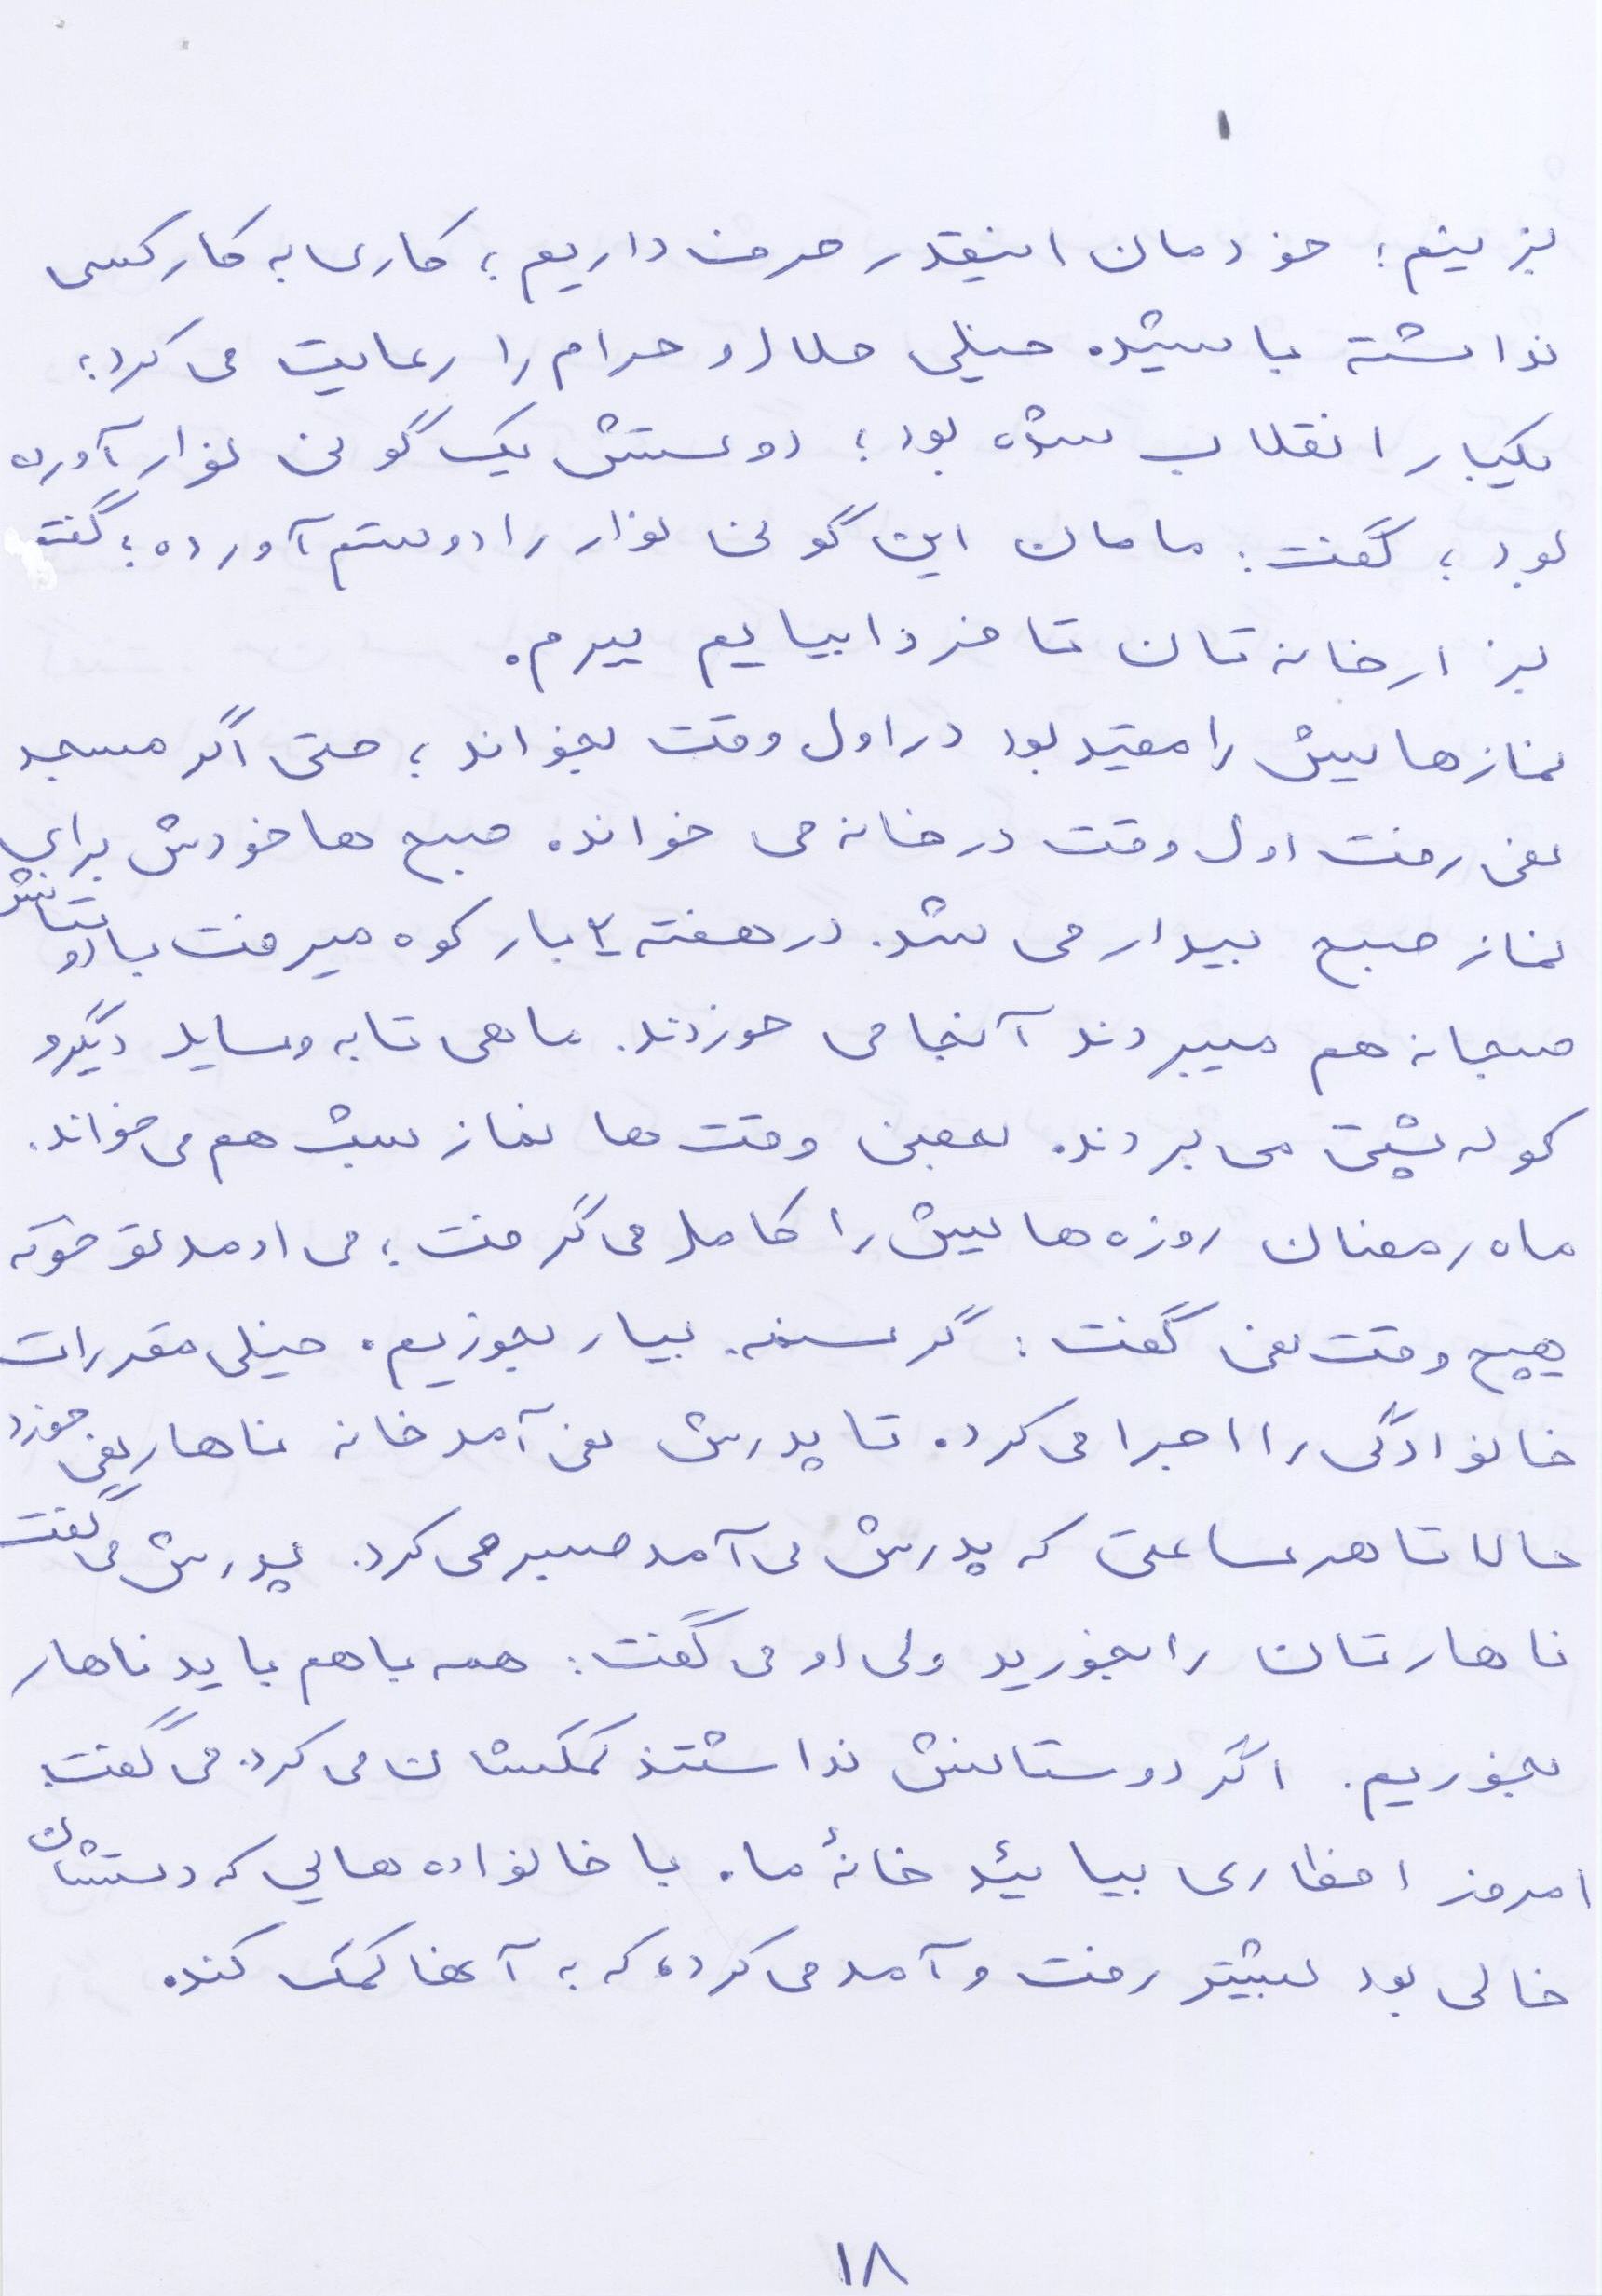 بزنیم؛ خودمان اینقدر حرف داریم؛ کاری به کار کسی
نداشته باشید. خیلی حلال و حرام را رعایت می کرد؛
یکبار انقلاب شده بود؛ دوستش یک گونی نوار آورده
بود؛ گفت: مامان این گونی نوار را دوستم آورده؛ گفت
بزار خانه تان تا فردا بیایم ببرم.
نمازهایش را مقید بود در اول وقت بخواند؛ حتی اگر مسجد
نمی رفت اول وقت در خانه می خواند. صبح ها خودش برای
نماز صبح بیدار می شد. در هفته ۲ بار کوه میرفت با دوستانش
صبحانه هم میبردند آنجا می خوردند. ماهی تابه وسایل دیگر و
کوله پشتی می بردند. بعضی وقت ها نماز شب هم می خواند.
ماه رمضان روزه هایش را کامل می گرفت؛ می اومد تو خونه
هیچ وقت نمی گفت: گرسنمه. بیار بخوریم. خیلی مقررات
خانوادگی را اجرا می کرد. تا پدرش نمی آمد خانه ناهار نمی خورد
حالا تا هر ساعتی که پدرش می آمد صبر می کرد. پدرش می گفت
ناهارتان را بخورید ولی او می گفت: همه با هم باید ناهار
بخوریم. اگر دوستانش نداشتند کمکشان می کرد. می گفت:
امروز افطاری بیائید خانهٔ ما. با خانواده هایی که دستشان
خالی بود بیشتر رفت و آمد می کرد، که به آنها کمک کند.
۱۸